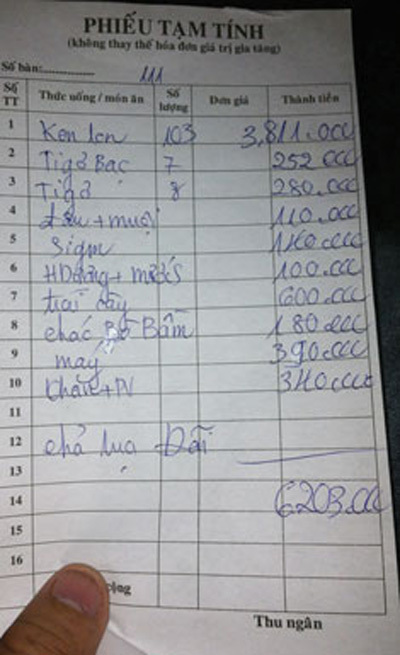 PHIẾU TẠM TÍNH
(không thay thế hóa đơn giá trị gia tăng)
Số bàn:............... 111
Số TT Thức uống / món ăn Số lượng Đơn giá Thành tiền
1 Ken lon 103 3,811.000
2 Tigơ Bạc 7 252.000
3 Tigơ 8 280.000
4 đậu + muối 110.000
5 140.000
6 100.000
7 trái cây 600.000
8 Bò Bằm 180.000
9 may 390.000
10 Khăn + PV 340.000
11
12 chả lụa Dài
13
14 6203.00
15
16
cộng
Thu ngân